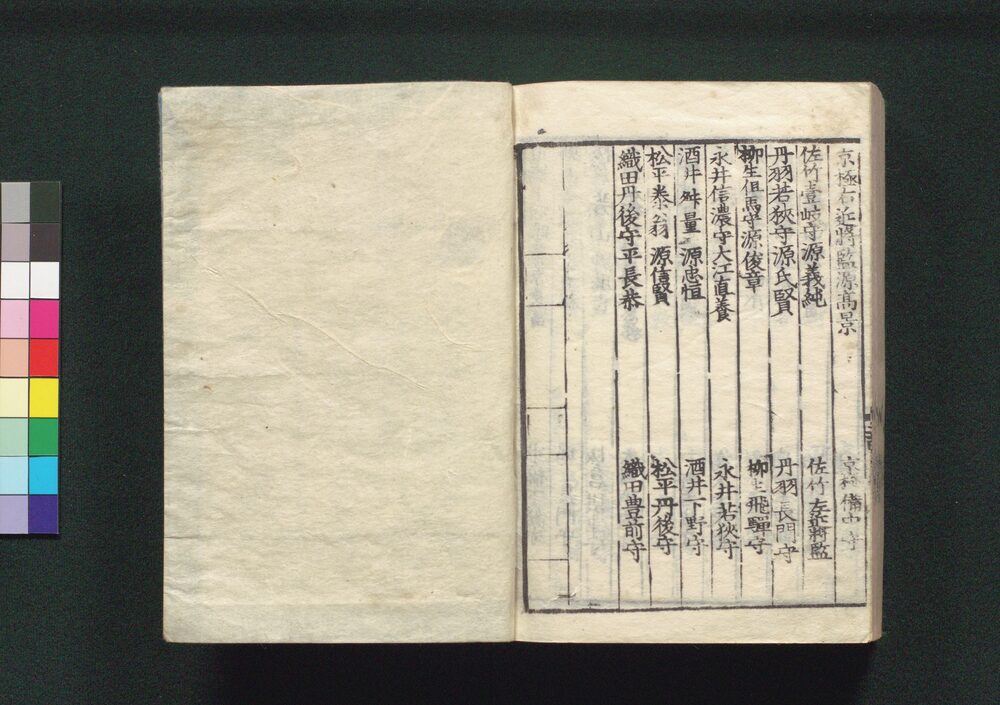 京極右近將監源高景 京極備中守
佐竹壹岐守源義純 佐竹左近將監
丹羽若狹守源氏賢 丹羽長門守
柳生但馬守源俊章 柳生飛驒守
永井信濃守大江直養 永井若狹守
酒井舛量源忠恒 酒井下野守
松平泰翁源信賢 松平丹後守
織田丹後守平長恭 織田豊前守